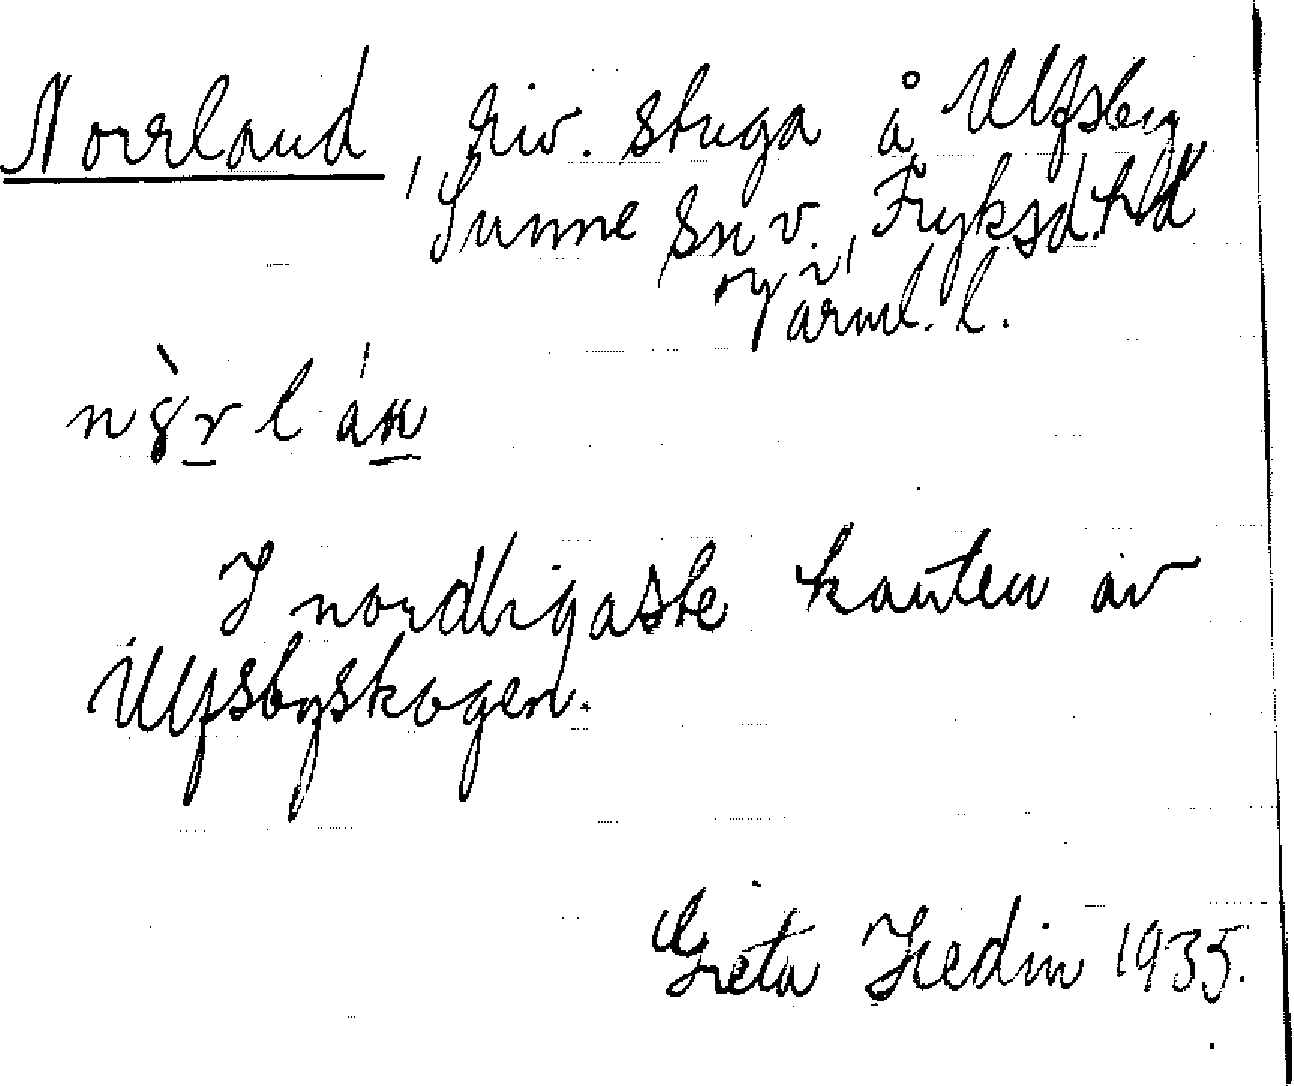 Norrland, riv. stuga å Ulfsby,
Sunne sn v., Fryksd. hd
Värml. l.
I nordligaste kanten av
Ulfsbyskogen.
Greta Hedin 1935.